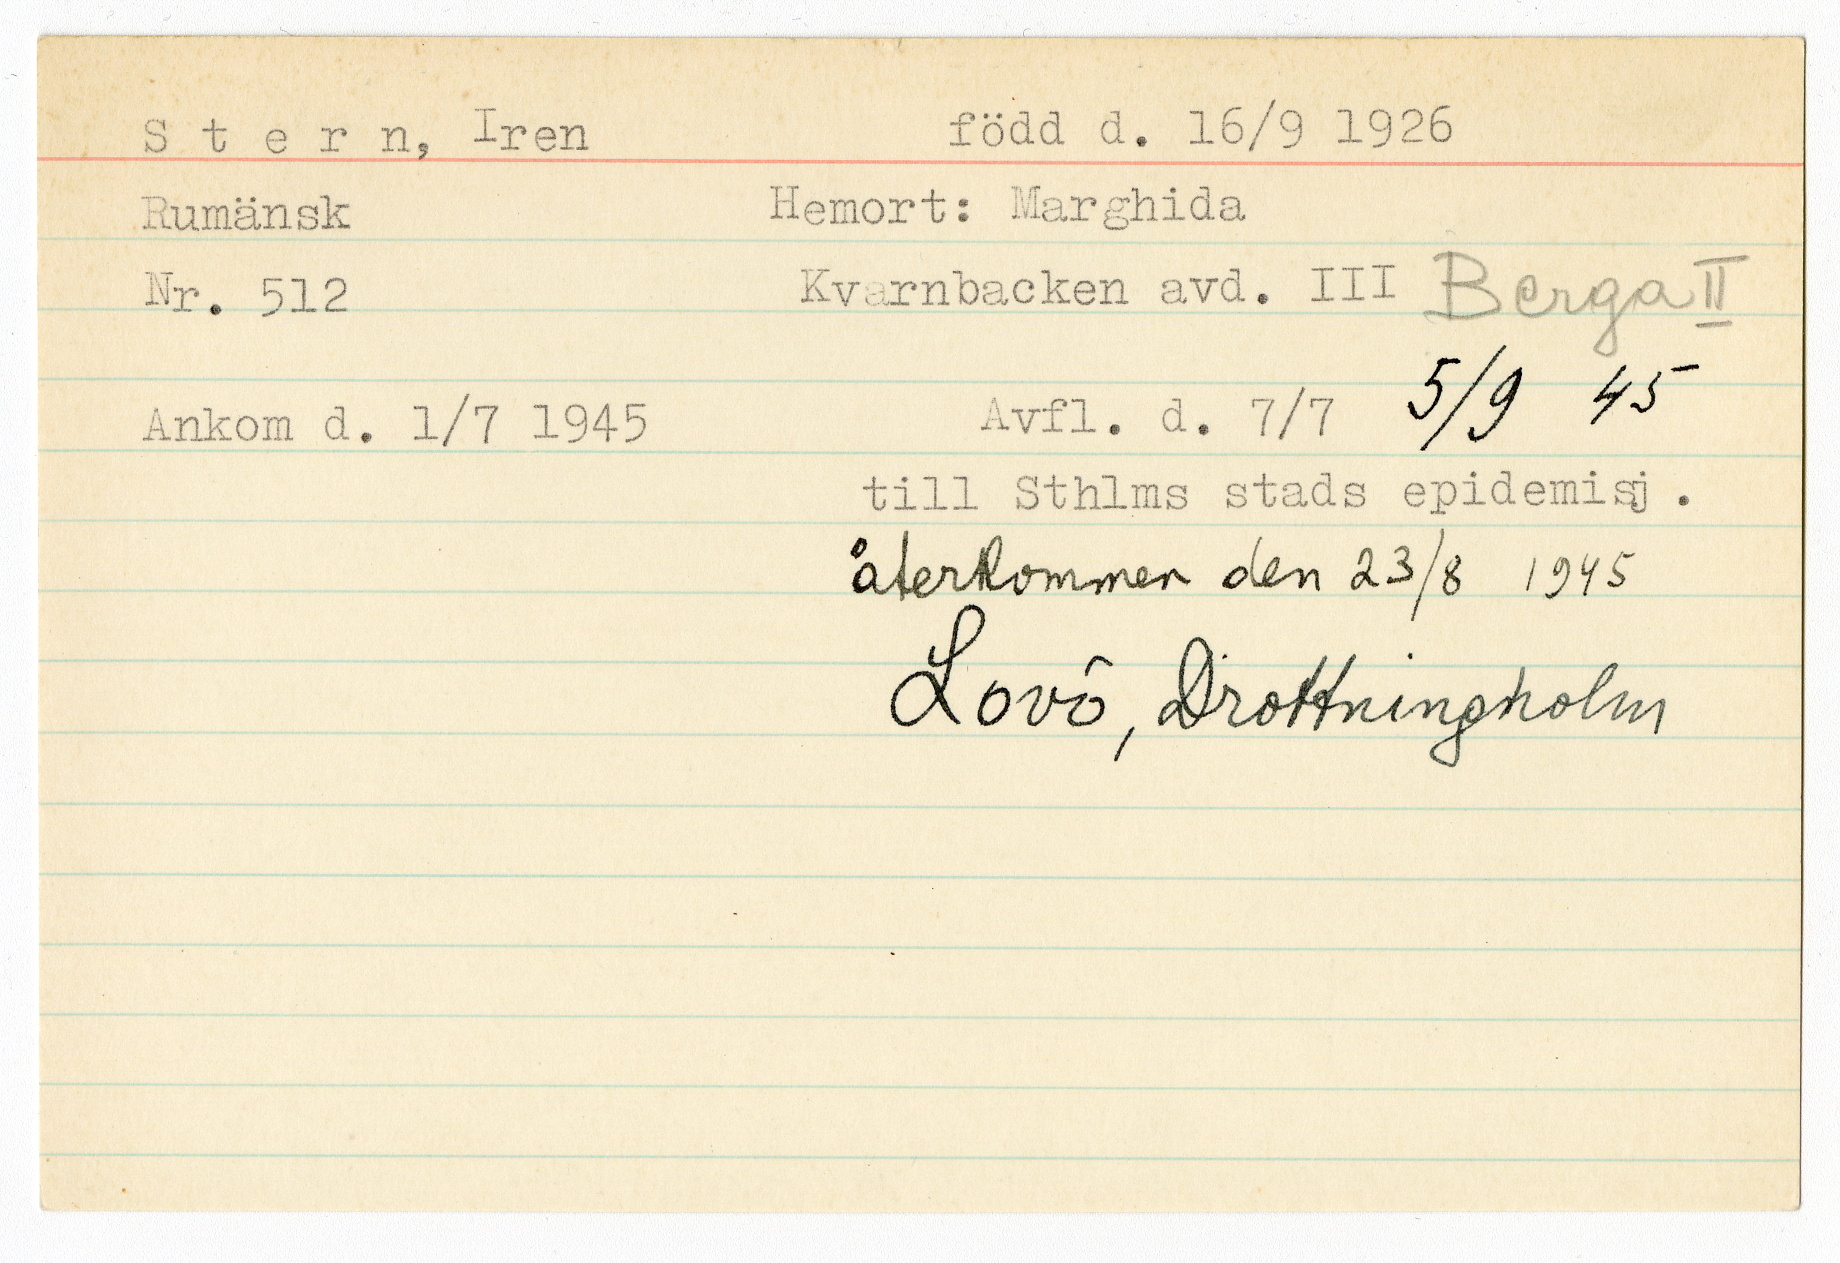 S t e r n, Iren född d. 16/9 1926
Rumänsk Hemort: Marghida
Nr. 512 Kvarnbacken avd. III Berga II
Ankom d. 1/7 1945 Avfl. d. 7/7 5/9 45
till Sthlms stads epidemisj.
återkommen den 23/8 1945
Lovö, Drottningholm